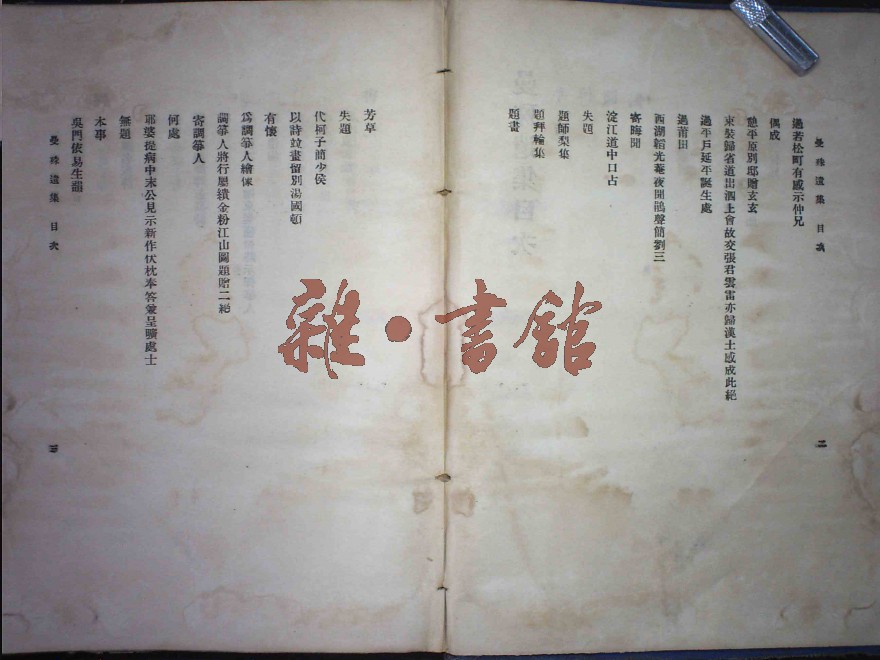 曼殊遺集 目次
過若松町有感示仲兄
偶成
憩平原別邸贈玄玄
束裝歸省道出泗上會故交張君雲雷亦歸漢土感成此絕
過平戶延平誕生處
過莆田
西湖韜光菴夜聞鵑聲簡劉三
寄晦聞
淀江道中口占
失題
題師梨集
題拜輪集
題畫
二
芳草
失題
代柯子簡少侯
以詩竝畫留別湯國頓
有懷
為調箏人繪像
調箏人將行屬績金粉江山圖題贈二絕
寄調箏人
何處
耶婆提病中末公見示新作伏枕奉答兼呈曠處士
無題
本事
吳門依易生韻
曼殊遺集 目次
三
雜·書館